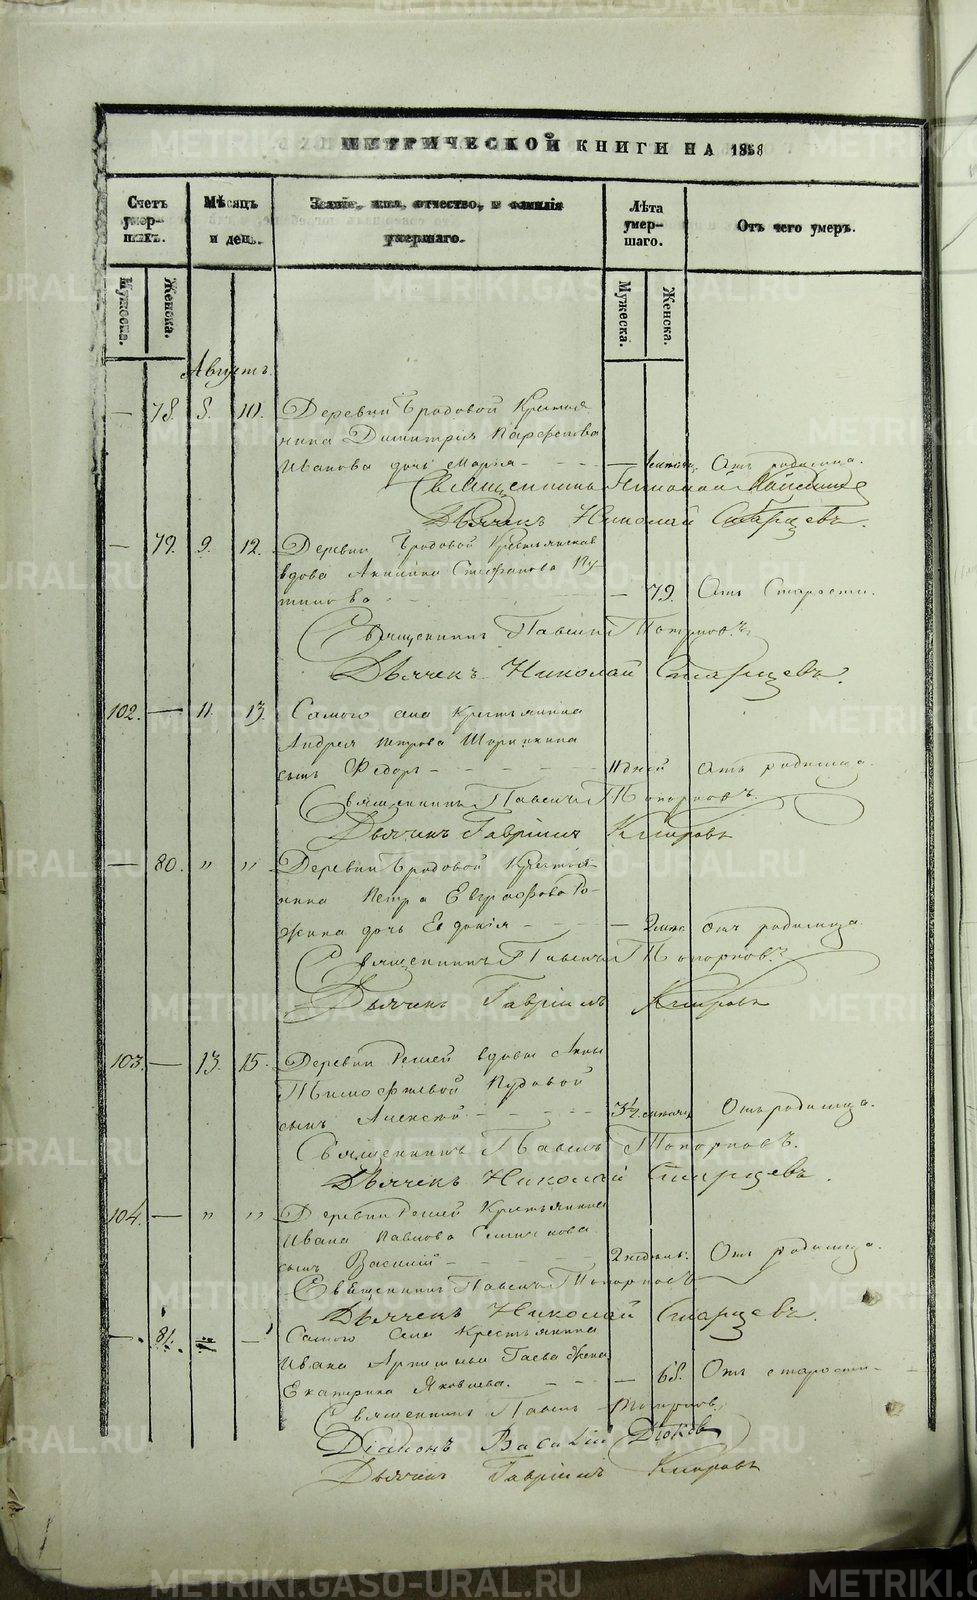 МЕТРИЧЕСКОЙ КНИГИ НА 1858
Счетъ умер-шихъ.
Мѣсяцъ и день.
Званіе, имя, отчество, и фамилія умершаго.
Лѣта умер-шаго.
Отъ чего умеръ.
Мужеска.
Женска.
Мужеска.
Женска.
Августъ.
— 78. 8. 10. Деревни Бродовой Крестья-
нина Димитрія Парфенова
Иванова дочь Марія — Отъ родимца.
Священникъ Николай
Дьячекъ Николай Старцевъ.
— 79. 9. 12. Деревни Бродовой Крестьянская
вдова Акилина Стефанова Пу-
— 79. Отъ Старости.
Священникъ Павелъ Топорковъ
Дьячекъ Николай Старцевъ.
102. — 11. 13. Самого села Крестьянина
Андрея Петрова
сынъ Федоръ — 11 дней Отъ родимца.
Священникъ Павелъ Топорковъ.
Дьячекъ Гавріилъ Кипровъ
— 80. " " Деревни Бродовой Крестья-
нина Петра Евграфова Ро-
жина дочь Евдокія — 2 Отъ родимца.
Священникъ Павелъ Топорковъ
Дьячекъ Гавріилъ Кипровъ
103. — 13. 15. Деревни вдовы Анны
Тимофеевой
сынъ Алексѣй — 3½ Отъ родимца.
Священникъ Павелъ Топорковъ.
Дьячекъ Николай Старцевъ.
104. — " " Деревни Крестьянина
Ивана Павлова
сынъ Василій — 2 недѣль. Отъ родимца.
Священникъ Павелъ Топорковъ
Дьячекъ Николай Старцевъ.
— 81. Самого Села Крестьянина
Ивана Гаева жена
Екатерина Яковлева. — 68. Отъ старости
Священникъ Павелъ Топорковъ
Діаконъ Василій
Дьячекъ Гавріилъ Кипровъ
METRIKI.GASO-URAL.RU